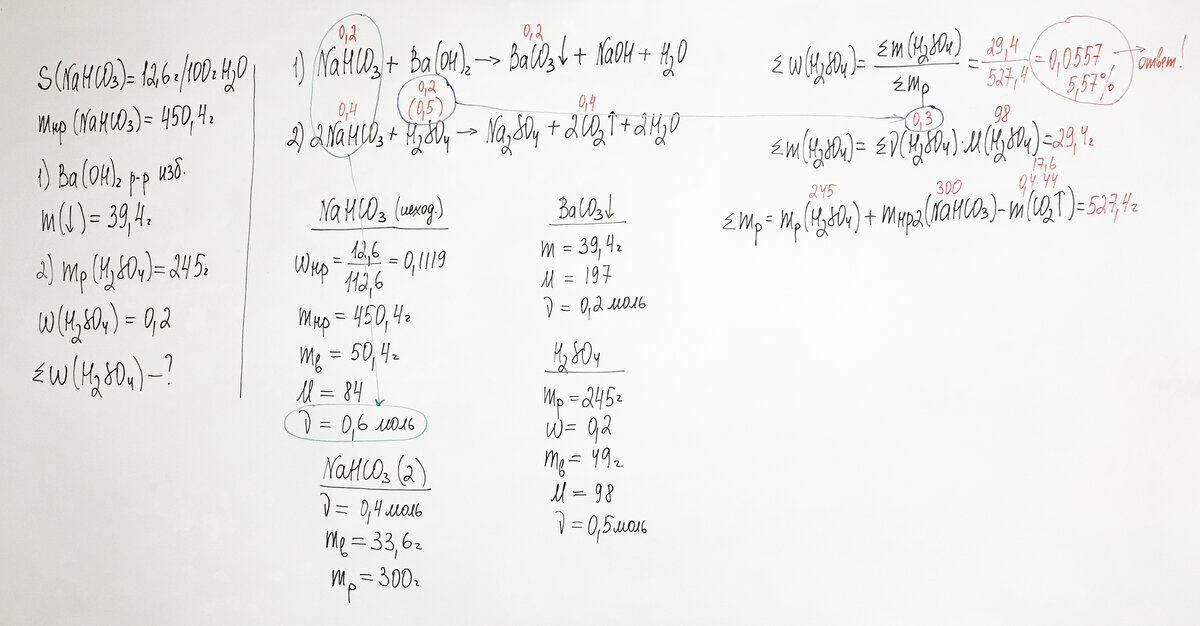 S(NaHCO₃)=12,6г/100г H₂O
mнр(NaHCO₃)=450,4г
1) Ba(OH)₂ р-р изб.
m(↓)=39,4г
2) mр(H₂SO₄)=245г
ω(H₂SO₄)=0,2
Σω(H₂SO₄)–?
0,2 0,2
1) NaHCO₃ + Ba(OH)₂ → BaCO₃↓ + NaOH + H₂O
0,2
0,4 (0,5) 0,4
2) 2NaHCO₃ + H₂SO₄ → Na₂SO₄ + 2CO₂↑ + 2H₂O
NaHCO₃ (исход.)
ωнр = 12,6/112,6 = 0,1119
mнр = 450,4г
mв = 50,4г
M = 84
ν = 0,6 моль
NaHCO₃(2)
ν = 0,4 моль
mв = 33,6г
mр = 300г
BaCO₃↓
m = 39,4г
M = 197
ν = 0,2 моль
H₂SO₄
mр = 245г
ω = 0,2
mв = 49г
M = 98
ν = 0,5 моль
Σω(H₂SO₄) = Σm(H₂SO₄)/Σmр = 29,4/527,4 = 0,0557
5,57%
ответ!
0,3 98
Σm(H₂SO₄) = Σν(H₂SO₄)·M(H₂SO₄) = 29,4г
17,6
245 300 0,4·44
Σmр = mр(H₂SO₄) + mнр2(NaHCO₃) – m(CO₂↑) = 527,4г